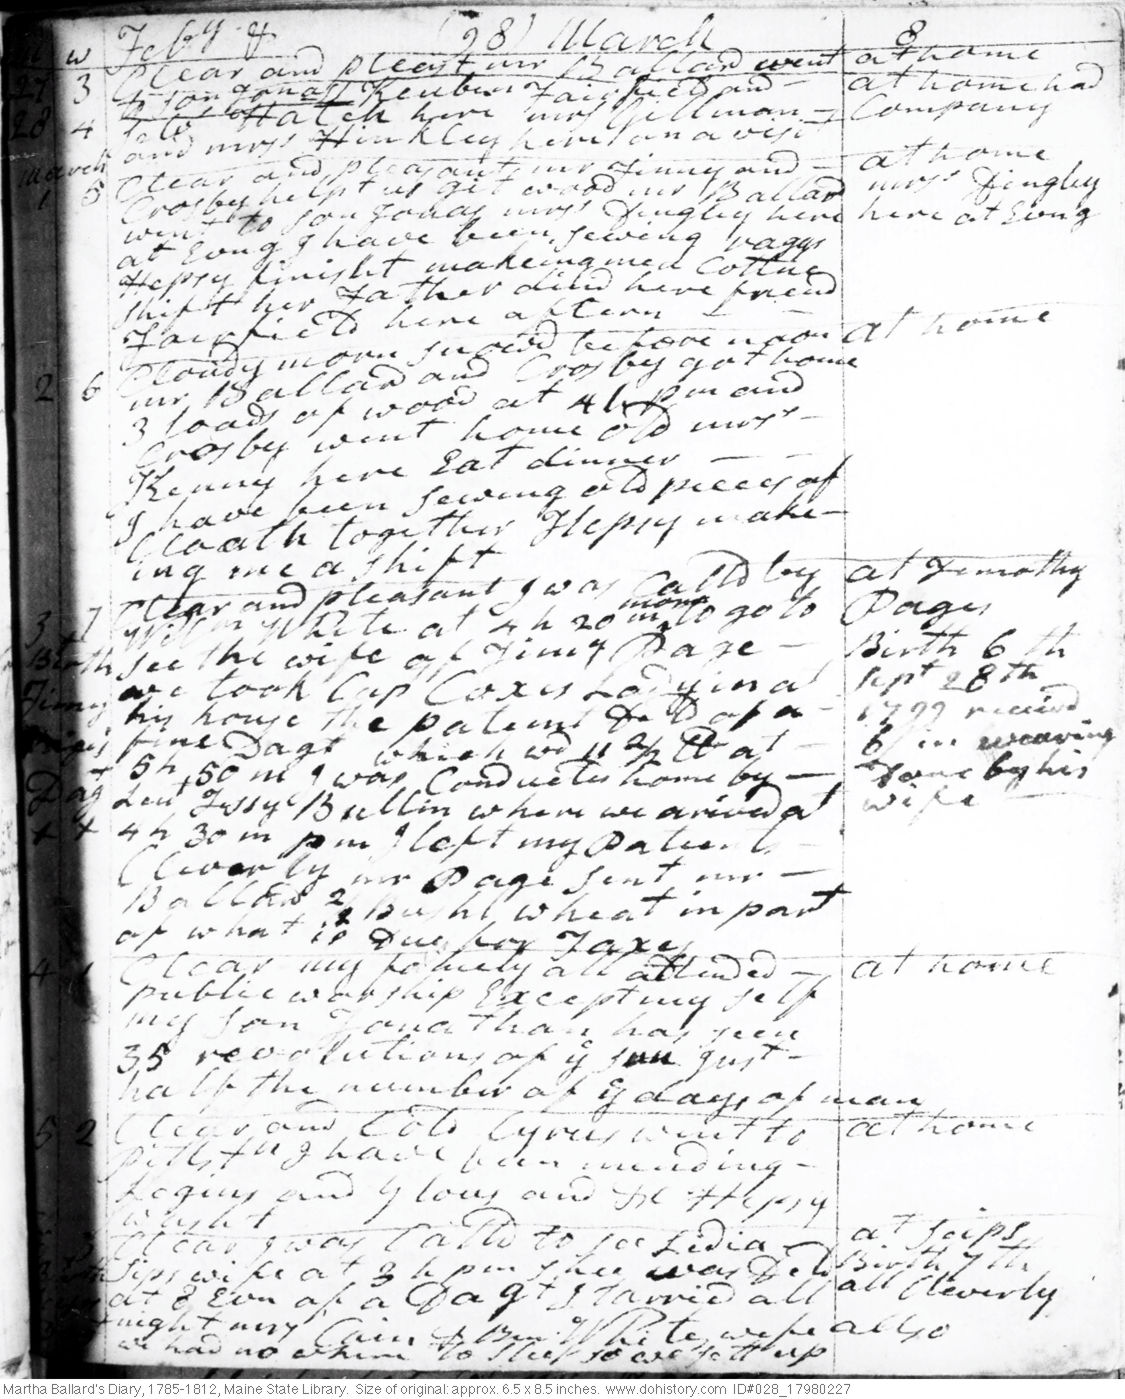 m w Feby & (28) March 8
27 3 Clear and pleast mr Ballard went at home
to son Jonas Reuben Fairfield and at home had
28 4 Hatch here mrs Gillman Company
and mrs Hinkley here on a visit
March Clear and pleasant mr Finny and at home
1 5 Crosby helpt us get wood mr Ballard mrs Dingley
went to son Jonas mrs Dingley here here at Evng
at Evng I have been sewing raggs
Hepsy finisht makeing me a Cottne
shift her Father dind here freind
Fairfield here aftern
2 6 Cloudy morn snowd before noon at home
mr Ballard and Crosby got home
3 loads of wood at 4 h pm and
Crosby went home old mrs
Kenny here Eat dinner
I have been sewing old pieces of
Cloath together Hepsy make
ing me a shift
3 7 Clear and pleasant I was Calld by at Timothy
Willm White at 4 h 20 m morn to go to Pages
Birth see the wife of Timy Page Birth 6 th
Timy we took Cap Coxes Lady in at Sept 28th
his house the patient Deld of a 1799 receivd
Pages fine Dagt which wd 11 lb at 6/ in weaving
Dagt 5h 50 m I was Conducted home by Done by his
Leut Jesy Bullin where we arived at wife
+ + 4 h 30 m pm I left my Patients
Cleverly mr Page sent mr
Ballard 2 Bushl wheat in part
of what is Due for Taxes
4 1 Clear my famely all attended at home
publick warship Except my self
my son Jonathan has seen
35 revolutions of ye sun Just
half the number of ye days of man
5 2 Clear and Cold Cyrus went to at home
Pitts I have been mending
Legins and gloves and Hepsy
washt
Clear I was Calld to see Lidia at Seips
Sips wife at 3 h pm shee was Deld Birth 7 th
at 8 Evn of a Dagt I Tarried all all Cleverly
night mrs Cain & Ben White wife allso
we had no whire to sleep so we sett up
Martha Ballard's Diary, 1785-1812, Maine State Library. Size of original: approx. 6.5 x 8.5 inches. www.dohistory.com ID#028_17980227